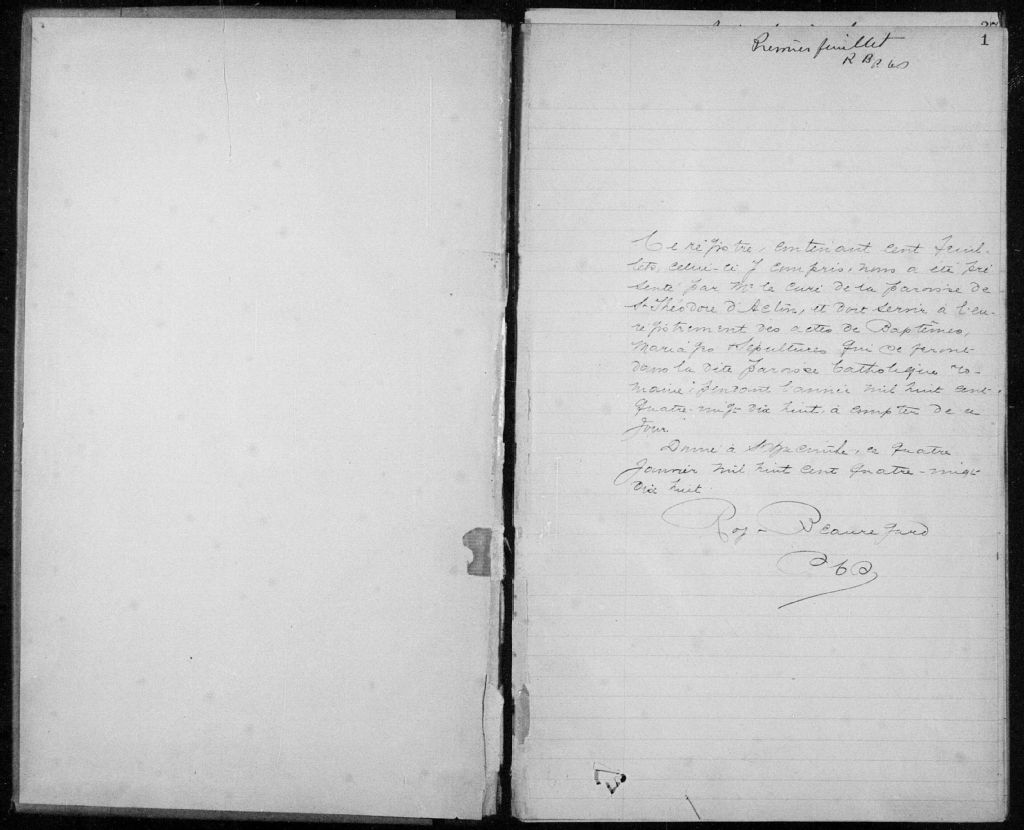 1
Premier feuillet
R B
Ce régistre, contenant cent feuil-
lets, celui-ci y compris, nous a été pré
senté par Mr le Curé de la paroisse de
St Théodore d'Acton, et doit servir à l'en-
régistrement des actes de Baptêmes,
Mariages & Sépultures qui se feront
dans la dite paroisse Catholique ro-
maine, pendant l'année mil huit cent
quatre-vingt dix huit, à compter de ce
jour
Donné à St Hyacinthe, ce quatre
Janvier mil huit cent quatre-vingt
dix huit.
Roy-Beauregard